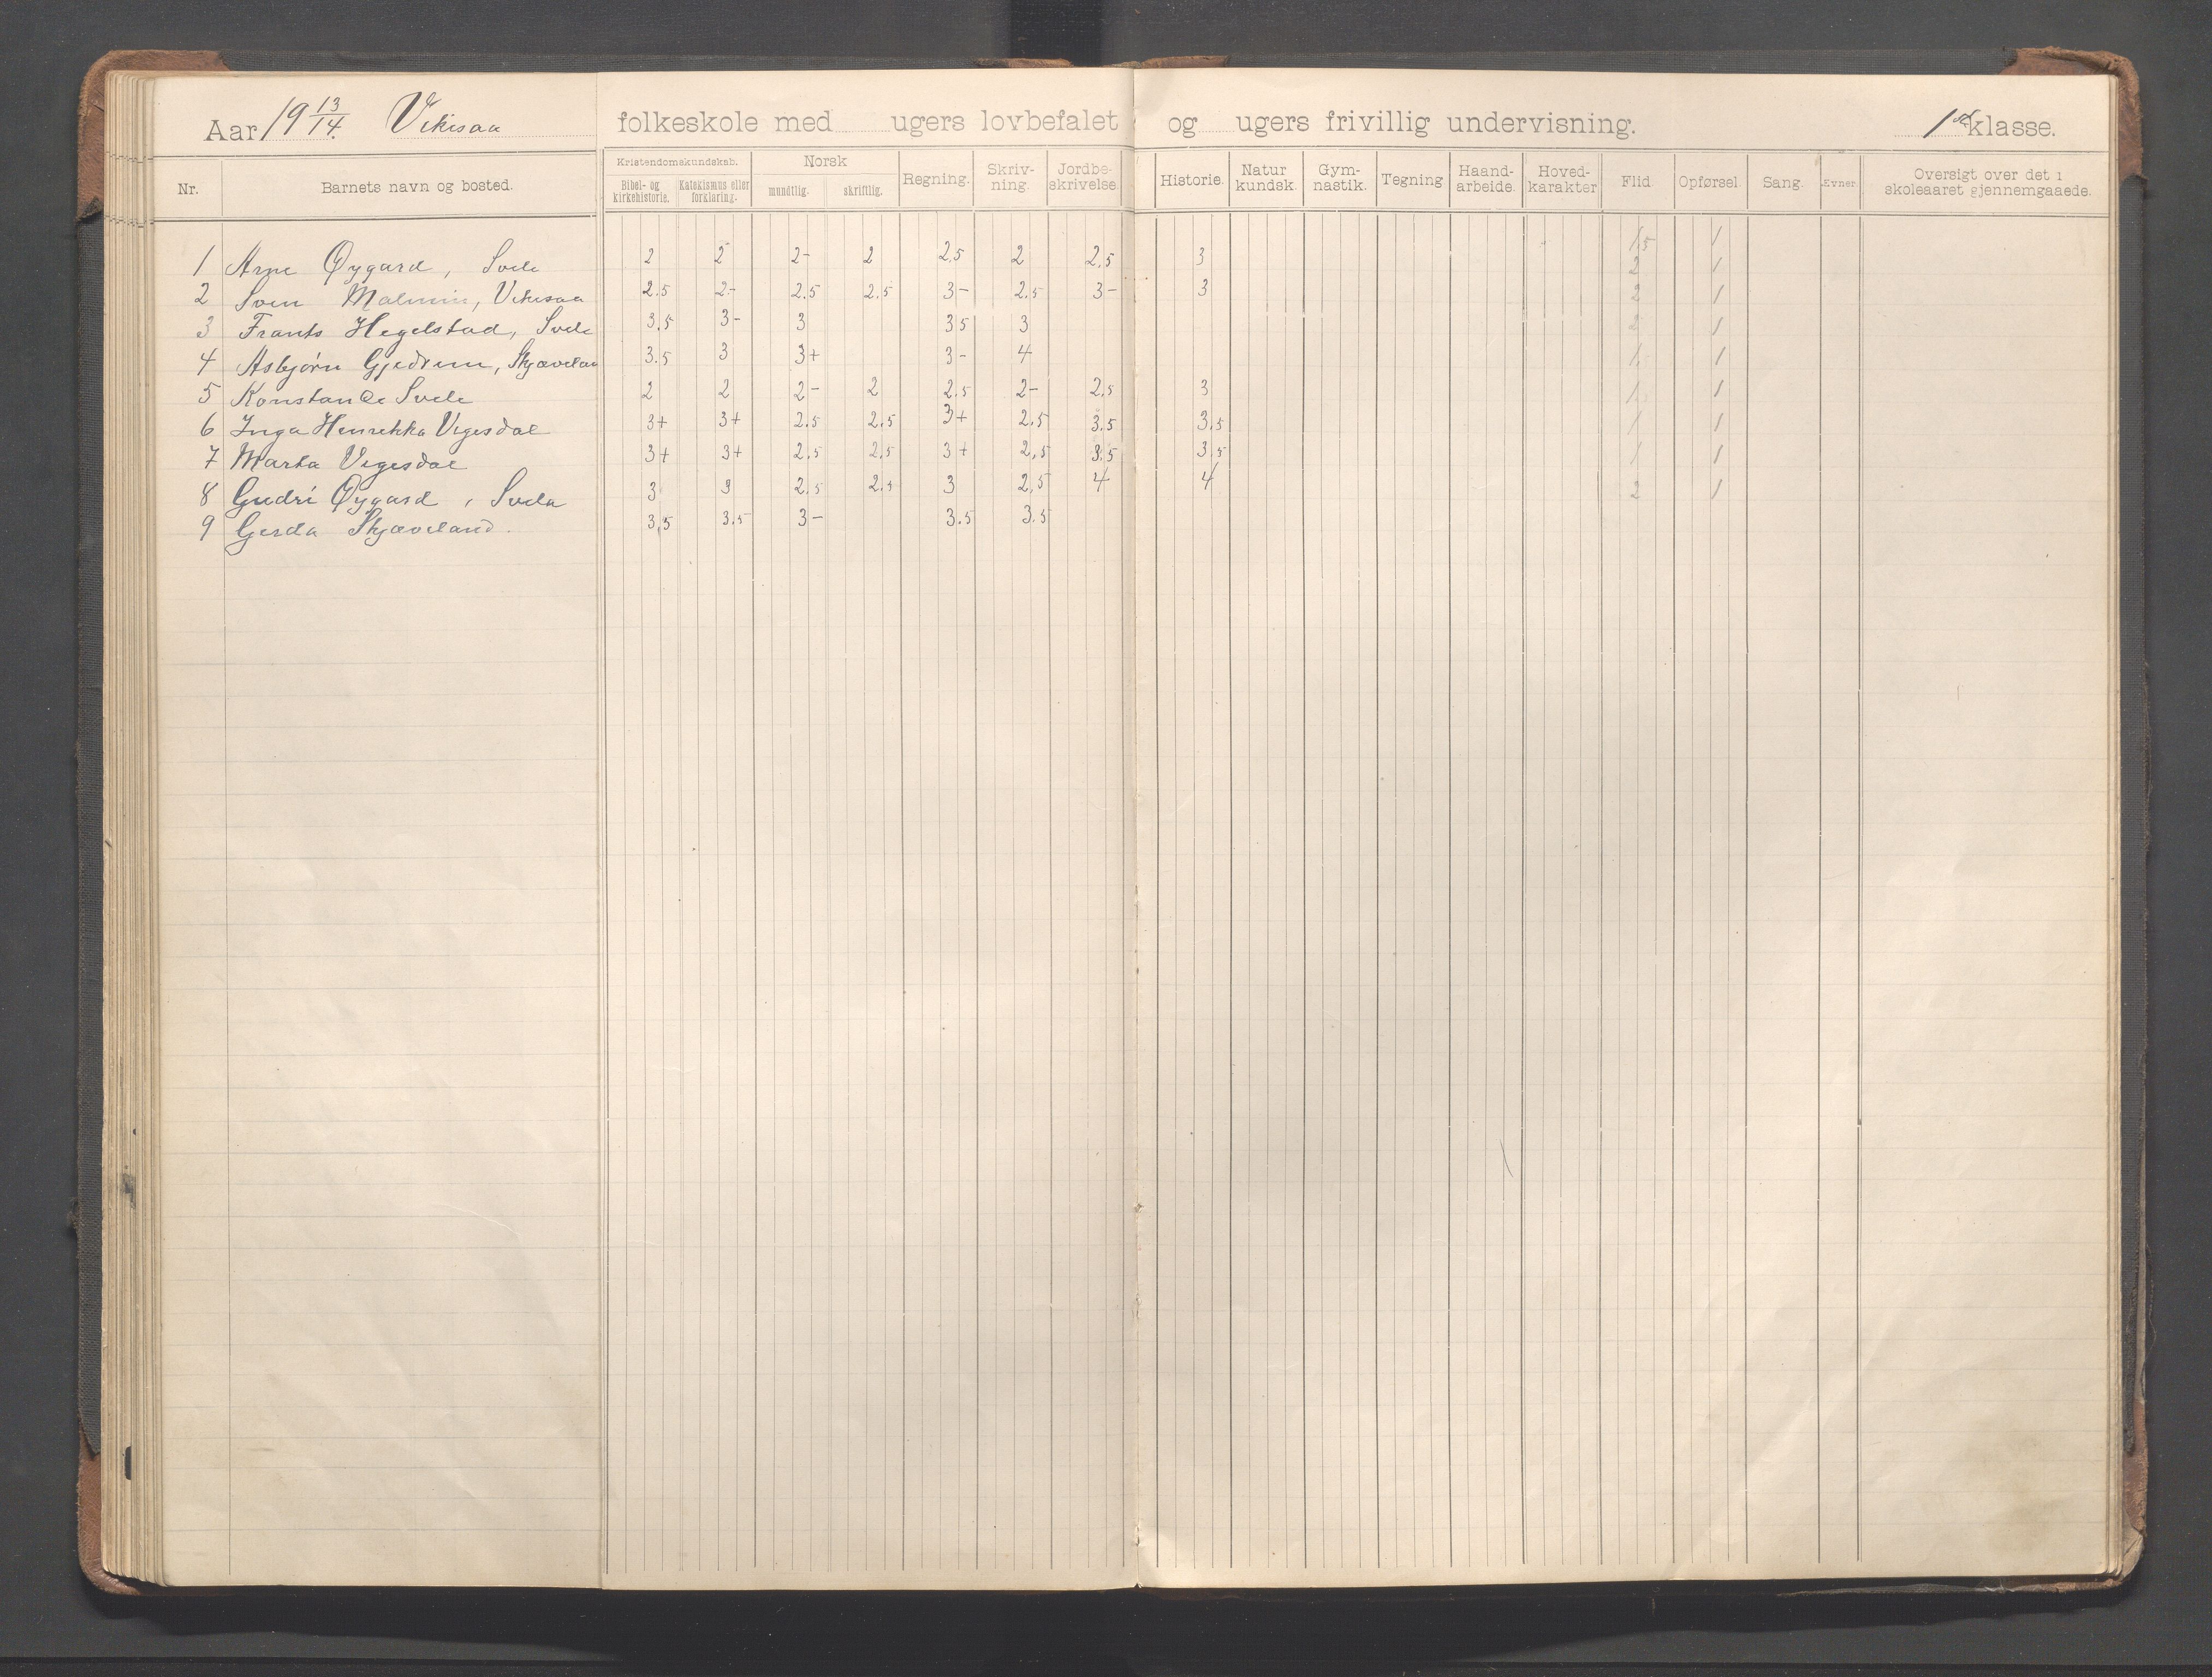 Aar 19 13/14. Vikesaa folkeskole med ugers lovbefalet og ugers frivillig undervisning. 1ste klasse.
Nr. Barnets navn og bosted. Kristendomskundskab. Bibel- og kirkehistorie. Katekismus eller forklaring. Norsk mundtlig. skriftlig. Regning. Skriv-ning. Jordbe-skrivelse. Historie. Natur kundsk. Gym-nastik. Tegning Haand-arbeide. Hoved-karakter Flid. Opførsel. Sang. Evner. Oversigt over det i skoleaaret gjennemgaaede.
1 Arne Øygard, Svele 2 2 2- 2 2,5 2 2,5 3 1,5 1
2 Sven Malmin, Vikesaa 2.5 2- 2.5 2.5 3- 2,5 3- 3 2 1
3 Frants Hegelstad, Svele 3,5 3- 3 35 3 2 1
4 Asbjørn Gjedrem, Skjævelan 3.5 3 3+ 3- 4 2 1
5 Konstanse Svele 2 2 2- 2 2,5 2- 2,5 3 1 1
6 Inga Henrekka Vigesdal 3+ 3+ 2.5 2,5 3+ 2,5 3.5 3,5 1 1
7 Marta Vigesdal 3+ 3+ 2,5 2,5 3+ 2,5 3,5 3,5 1 1
8 Gudri Øygard, Svela 3 3 2.5 2.5 3 2,5 4 4 1 1
9 Gerda Skjæveland. 3,5 3.5 3- 3.5 3.5 2 1